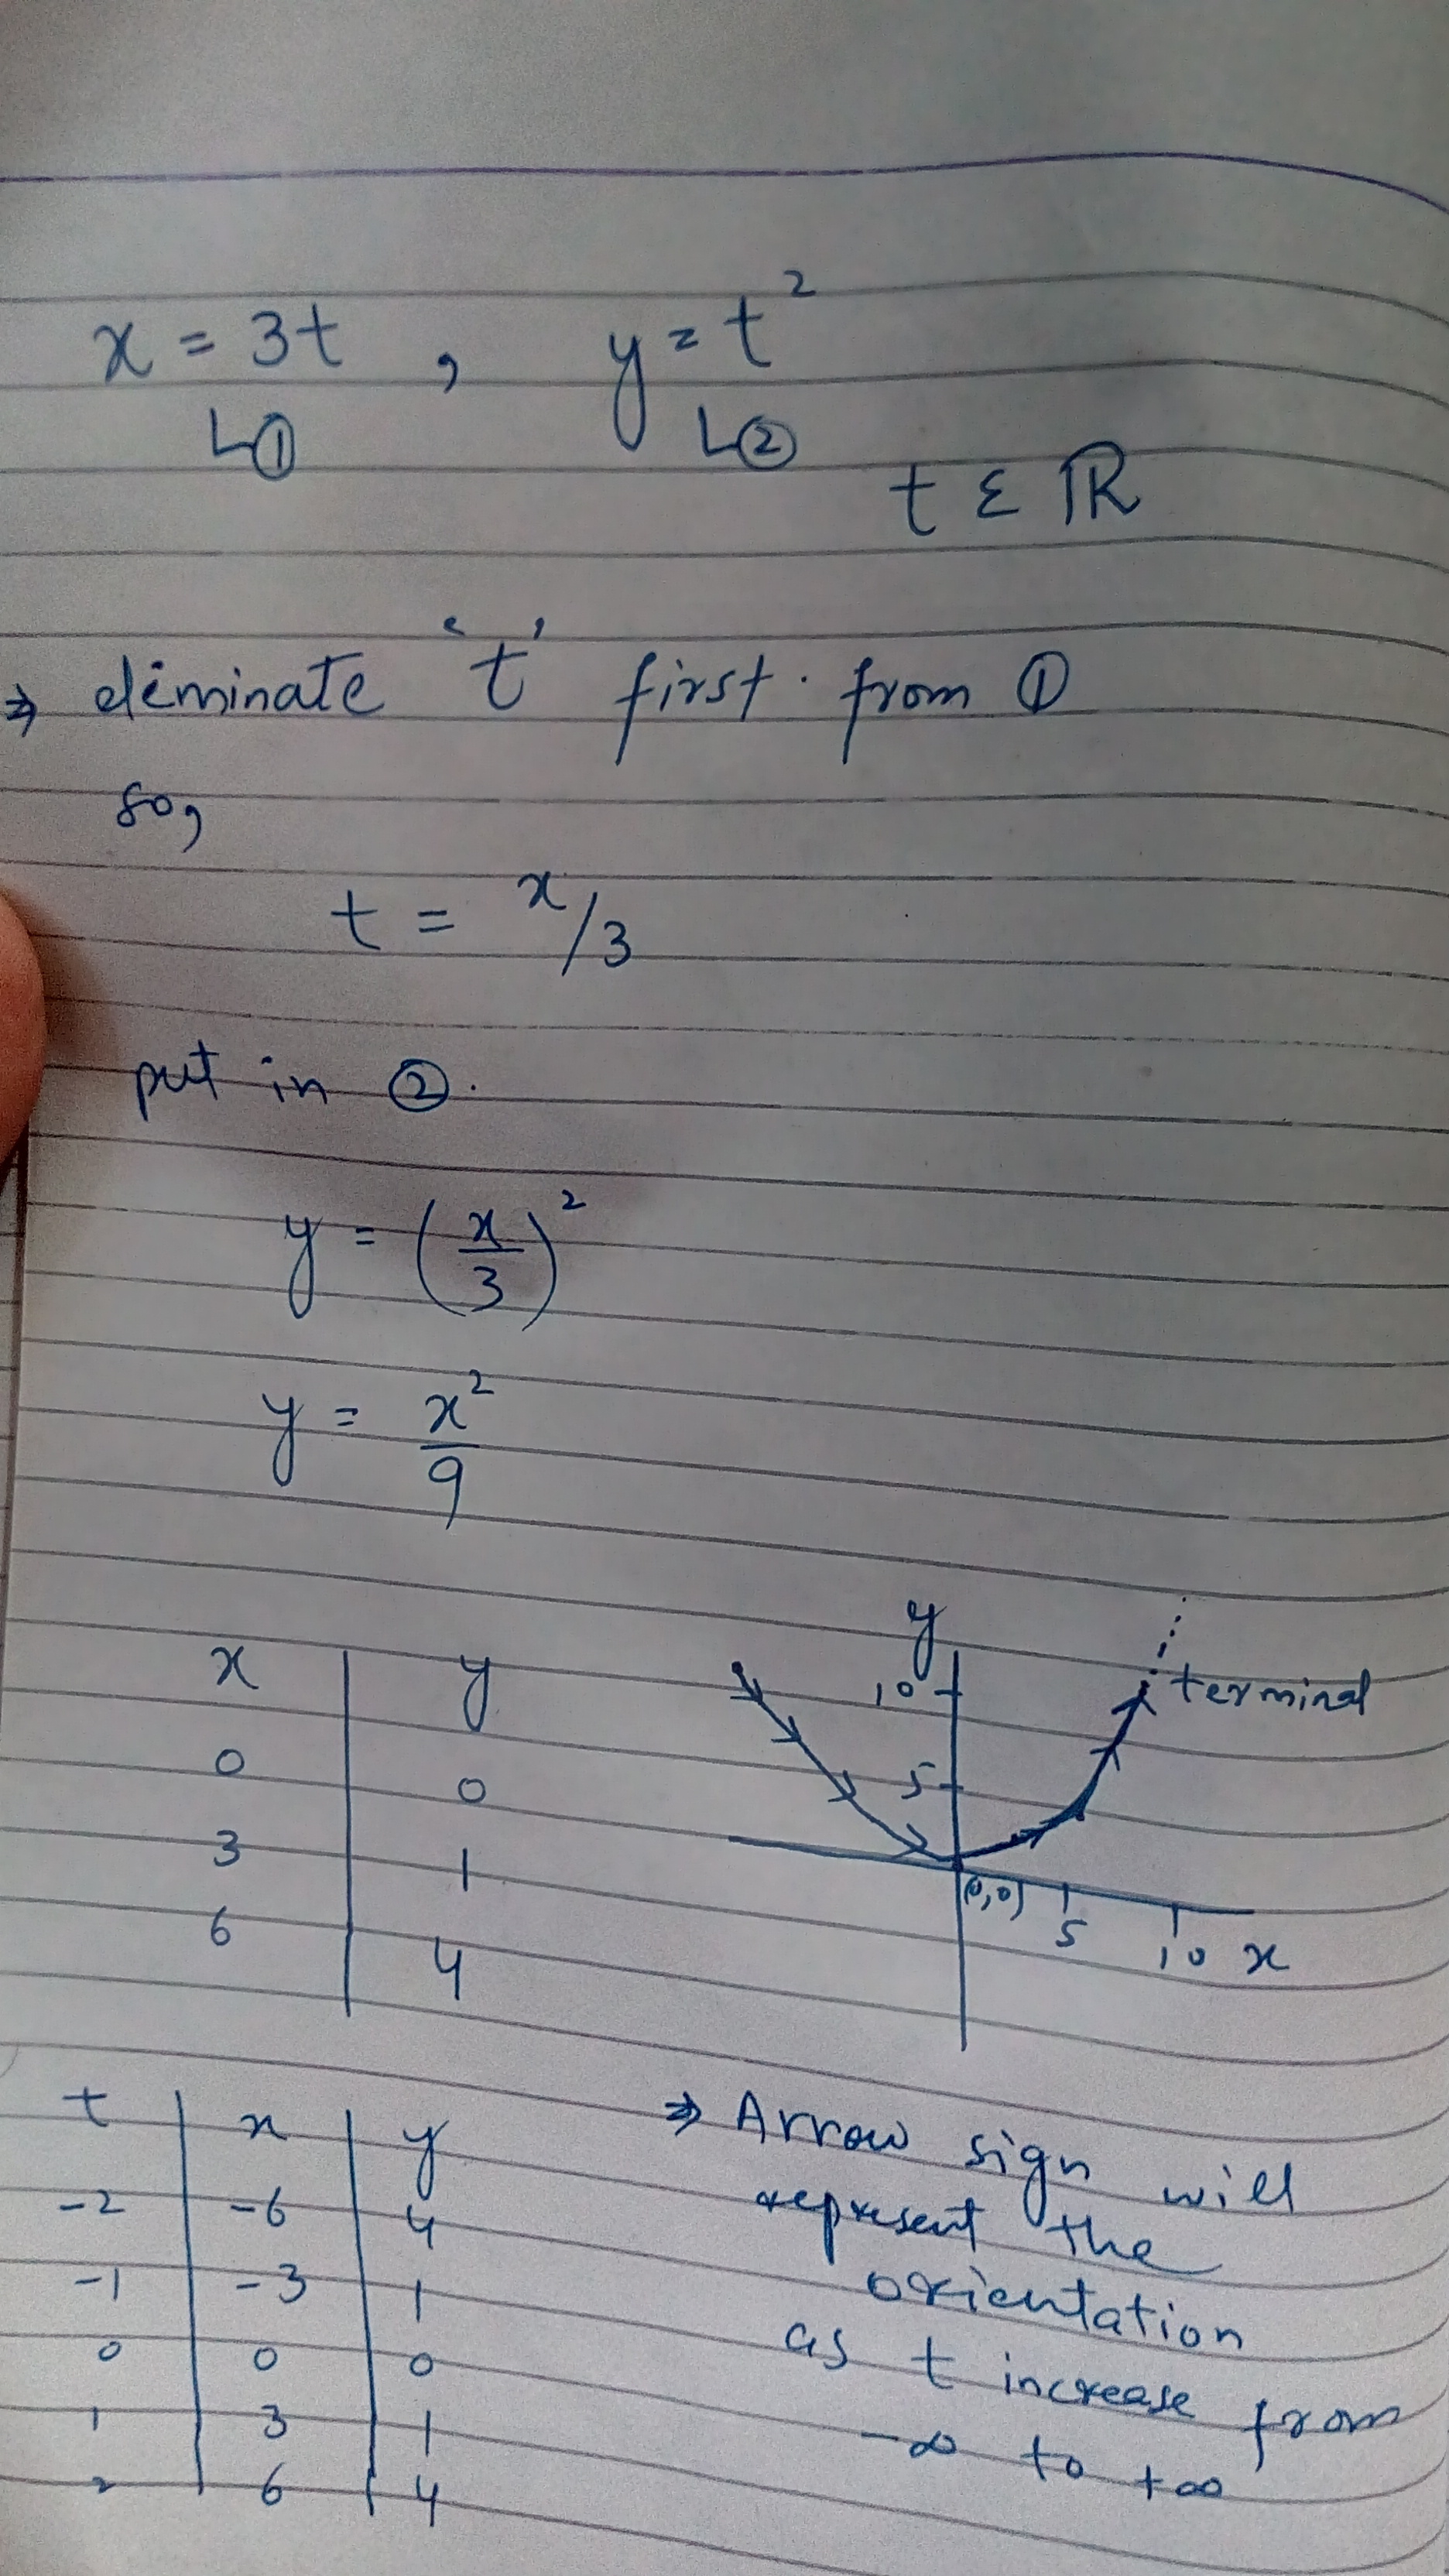 x = 3t , y = t²
↳① ↳②
t ε ℝ
⇒ eliminate 't' first. from ①
so,
t = x/3
put in ②.
y = (x/3)²
y = x²/9
x | y
0 | 0
3 | 1
6 | 4
y
10
5
terminal
(0,0)
5
10 x
t | x | y
-2 | -6 | 4
-1 | -3 | 1
0 | 0 | 0
1 | 3 | 1
2 | 6 | 4
⇒ Arrow sign will
represent the
orientation
as t increase from
-∞ to +∞